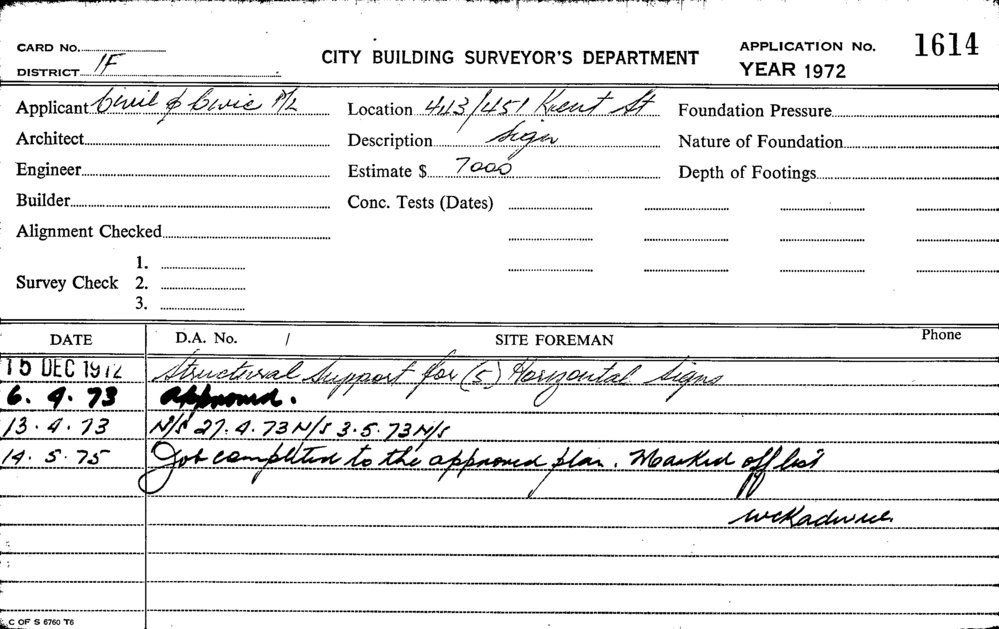 CARD NO.
DISTRICT 1F
CITY BUILDING SURVEYOR'S DEPARTMENT
APPLICATION No. 1614
YEAR 1972
Applicant Civil & Civic P/L Location 413/451 Kent St Foundation Pressure
Architect Description Sign Nature of Foundation
Engineer Estimate $ 7000 Depth of Footings
Builder Conc. Tests (Dates)
Alignment Checked
1.
Survey Check 2.
3.
DATE D.A. No. / SITE FOREMAN Phone
15 DEC 1972 Structural Support for (5) Horizontal Signs
6. 4. 73 approved.
13. 4. 73 N/S 27. 4. 73 N/S 3. 5. 73 N/S
14. 5. 75 Job completed to the approved plan. Marked off list
C OF S 6760 T6